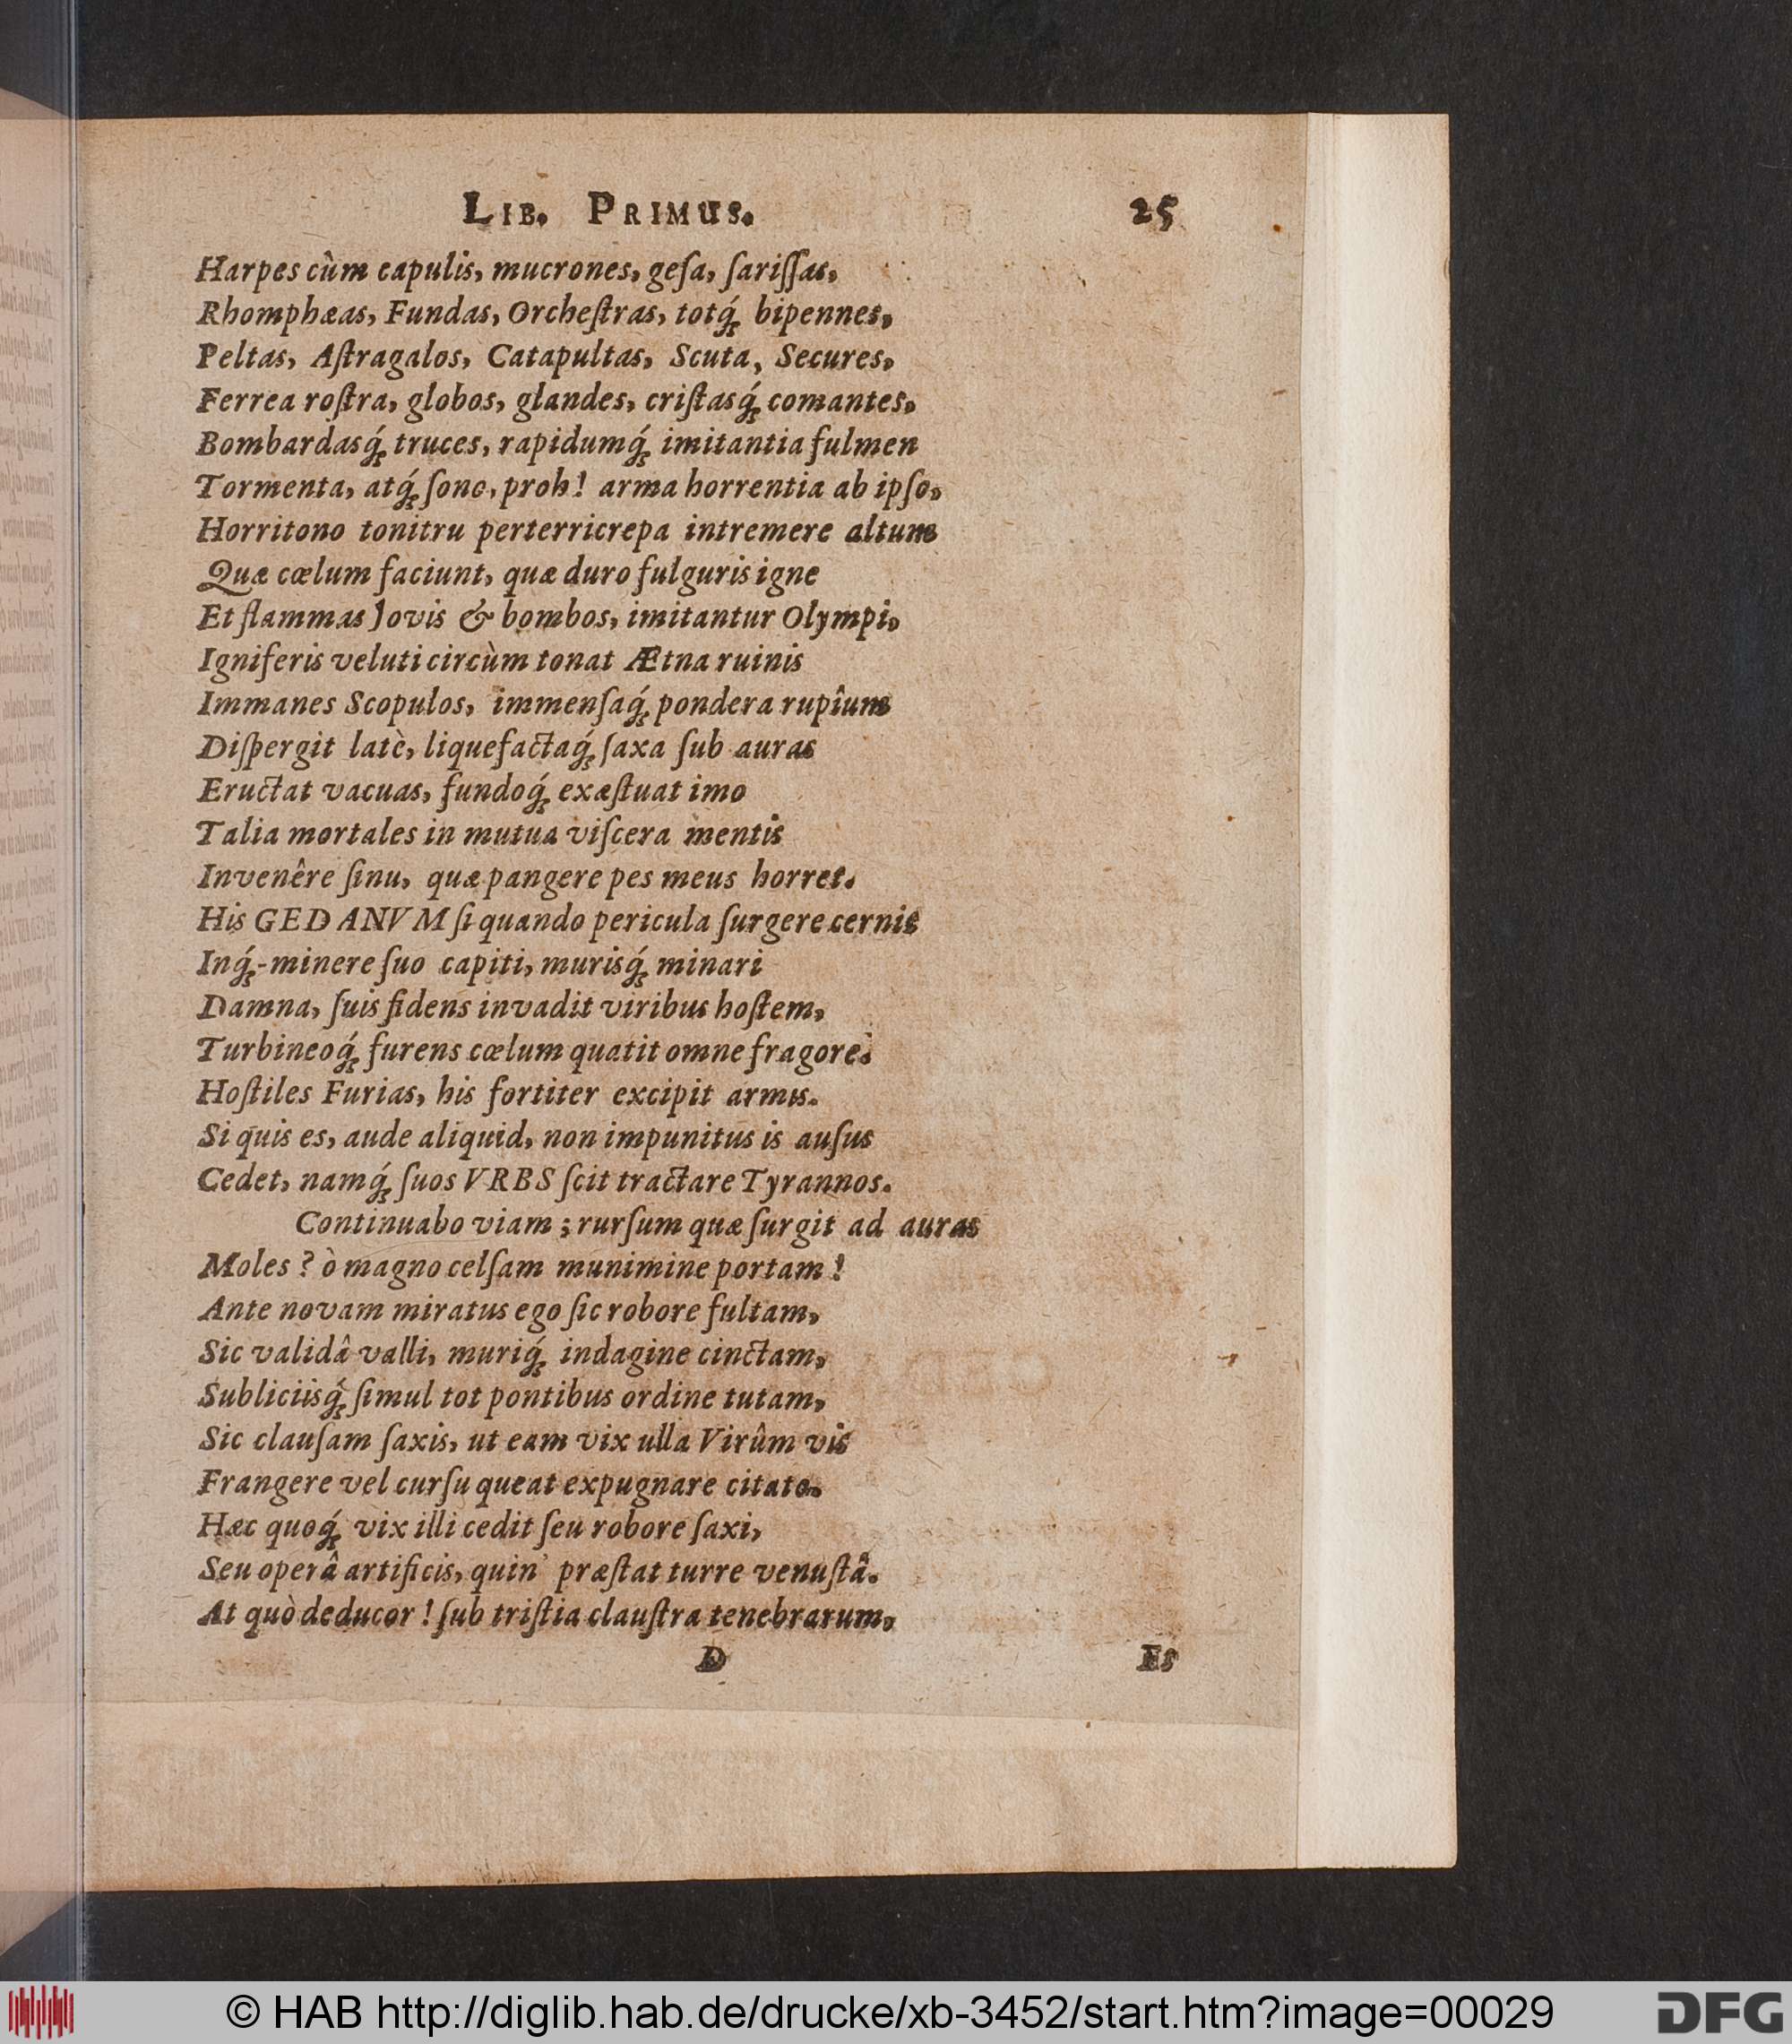 LIB. PRIMUS. 25
Harpes cùm capulis, mucrones, geſa, ſariſſas,
Rhomphæas, Fundas, Orcheſtras, totq́ꝫ bipennes,
Peltas, Aſtragalos, Catapultas, Scuta, Secures,
Ferrea roſtra, globos, glandes, criſtasq́ꝫ comantes,
Bombardasq́ꝫ truces, rapidumq́ꝫ imitantia fulmen
Tormenta, atq́ꝫ ſono, proh! arma horrentia ab ipſo,
Horritono tonitru perterricrepa intremere altum
Quæ cœlum faciunt, quæ duro fulguris igne
Et flammas Jovis & bombos, imitantur Olympi,
Igniferis veluti circùm tonat Ætna ruinis
Immanes Scopulos, immenſaq́ꝫ pondera rupîum
Diſpergit latè, liquefactaq́ꝫ ſaxa ſub auras
Eructat vacuas, fundoq́ꝫ exæſtuat imo
Talia mortales in mutua viſcera mentis
Invenêre ſinu, quæ pangere pes meus horret.
His GEDANVM ſi quando pericula ſurgere cernit
Inq́ꝫ-minere ſuo capiti, murisq́ꝫ minari
Damna, ſuis fidens invadit viribus hoſtem,
Turbineoq́ꝫ furens cœlum quatit omne fragore.
Hoſtiles Furias, his fortiter excipit armis.
Si quis es, aude aliquid, non impunitus is auſus
Cedet, namq́ꝫ ſuos VRBS ſcit tractare Tyrannos.
Continuabo viam; rurſum quæ ſurgit ad auras
Moles? ò magno celſam munimine portam!
Ante novam miratus ego ſic robore fultam,
Sic validâ valli, muriq́ꝫ indagine cinctam,
Subliciisq́ꝫ ſimul tot pontibus ordine tutam,
Sic clauſam ſaxis, ut eam vix ulla Virûm vis
Frangere vel curſu queat expugnare citato.
Hæc quoq́ꝫ vix illi cedit ſeu robore ſaxi,
Seu operâ artificis, quin' præſtat turre venuſtâ.
At quò deducor! ſub triſtia clauſtra tenebrarum,
D Eſ
© HAB http://diglib.hab.de/drucke/xb-3452/start.htm?image=00029
DFG